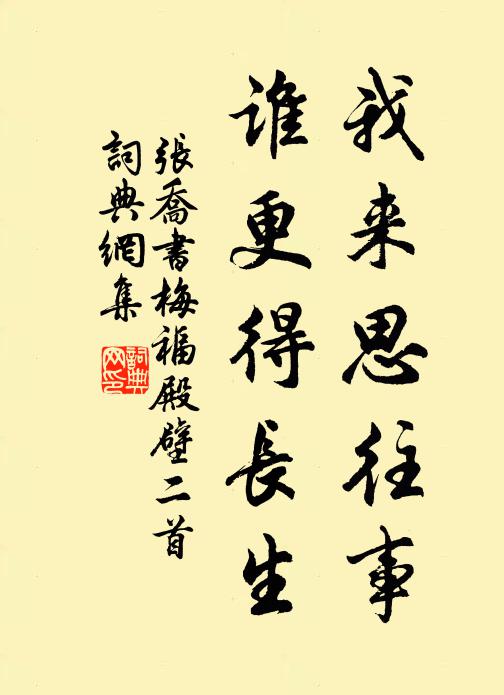 我来思往事
谁更得長生
張喬書梅福殿壁二首
詞典網集
詞典网印